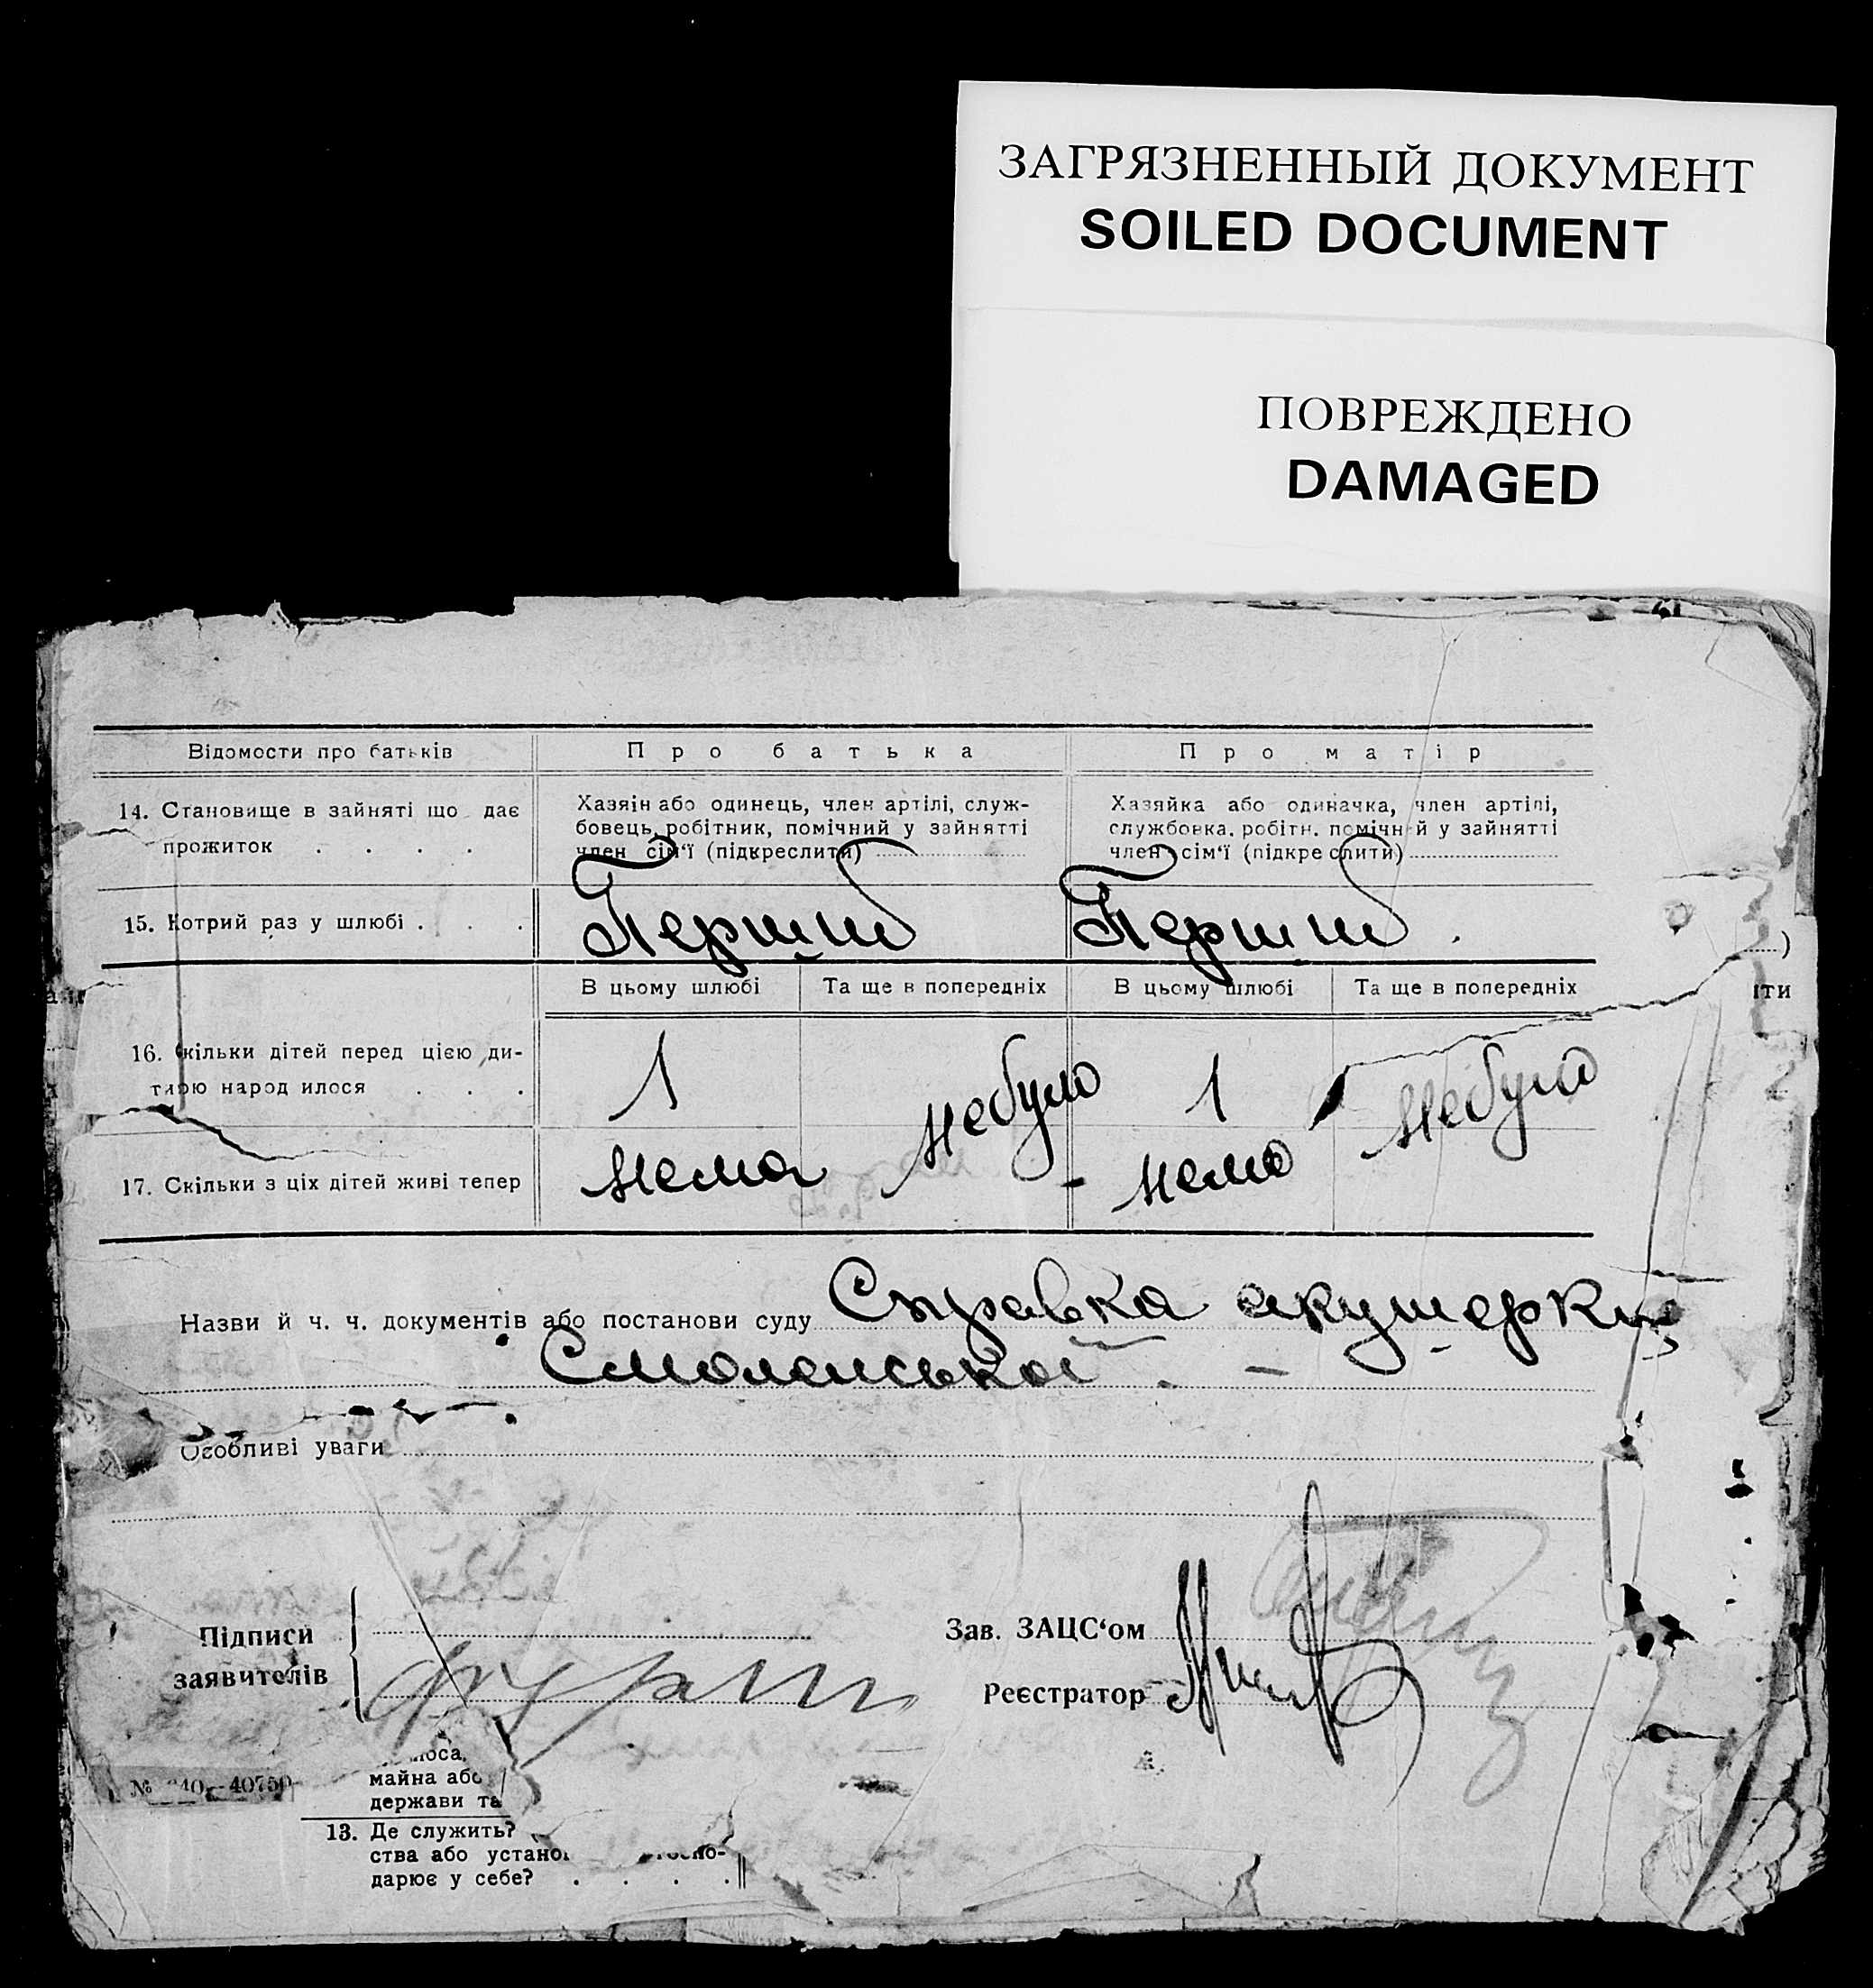 ЗАГРЯЗНЕННЫЙ ДОКУМЕНТ
SOILED DOCUMENT
ПОВРЕЖДЕНО
DAMAGED
Відомости про батьків
Про батька
Про матір
14. Становище в зайняті що дає
прожиток . . . .
Хазяін або одинець, член артілі, служ-
бовець, робітник, помічний у зайнятті
член сім‘ї (підкреслити)
Хазяйка або одиначка, член артілі,
службовка. робітн. помічний у зайнятті
член сім‘ї (підкреслити)
15. Котрий раз у шлюбі . . .
Перший
Перший.
В цьому шлюбі
Та ще в попередніх
В цьому шлюбі
Та ще в попередніх
ити
16. Скільки дітей перед цією ди-
тиою народ илося . . .
1
небуло
1
небуло
17. Скільки з ціх дітей живі тепер
нема
- нема
Назви й ч. ч. документів або постанови суду Справка акушерки
Смоленської. -
Особливі уваги
Підписи
заявителів
Зав. ЗАЦС‘ом
Реєстратор
майна або
держави та
13. Де служить?
ства або
дарює у себе? . . . .